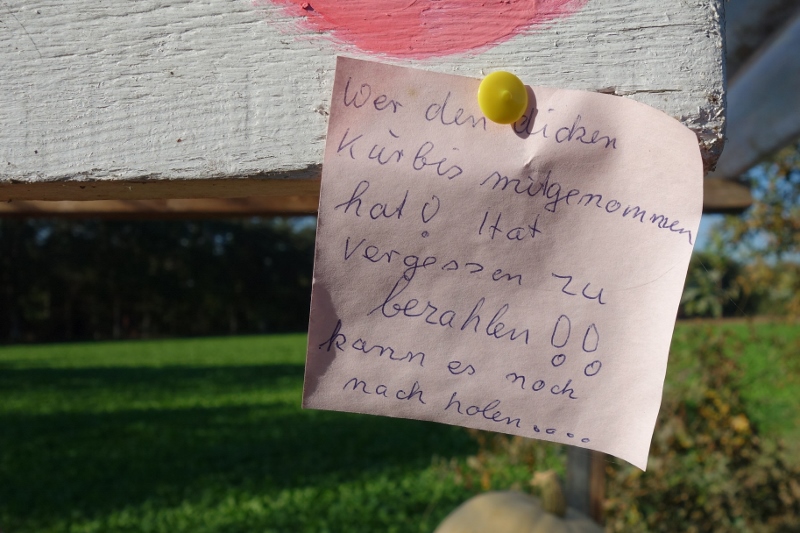 Wer den dicken
Kürbis mitgenommen
hat! Hat
vergessen zu
bezahlen!!
kann es noch
nach holen....